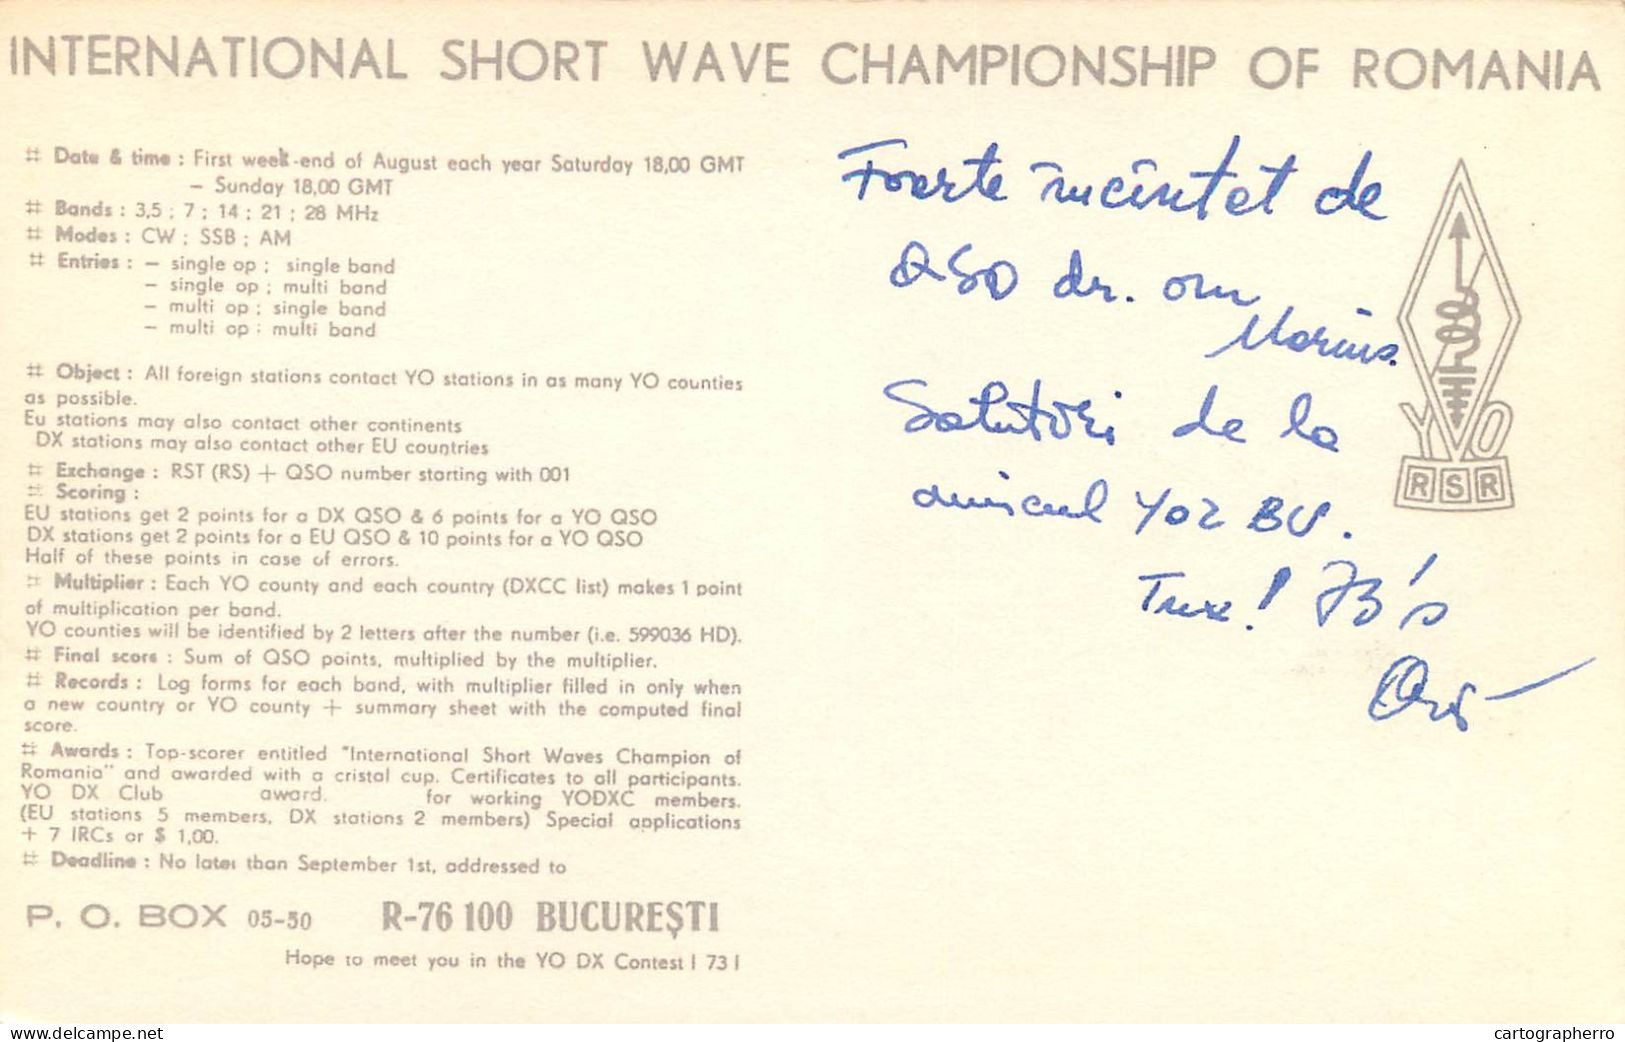 INTERNATIONAL SHORT WAVE CHAMPIONSHIP OF ROMANIA
# Date & time : First week-end of August each year Saturday 18,00 GMT
– Sunday 18,00 GMT
# Bands : 3,5 ; 7 ; 14 ; 21 ; 28 MHz
# Modes : CW ; SSB ; AM
# Entries : – single op ; single band
– single op ; multi band
– multi op ; single band
– multi op : multi band
# Object : All foreign stations contact YO stations in as many YO counties
as possible.
Eu stations may also contact other continents
DX stations may also contact other EU countries
# Exchange : RST (RS) + QSO number starting with 001
# Scoring :
EU stations get 2 points for a DX QSO & 6 points for a YO QSO
DX stations get 2 points for a EU QSO & 10 points for a YO QSO
Half of these points in case of errors.
# Multiplier : Each YO county and each country (DXCC list) makes 1 point
of multiplication per band.
YO counties will be identified by 2 letters after the number (i.e. 599036 HD).
# Final score : Sum of QSO points, multiplied by the multiplier.
# Records : Log forms for each band, with multiplier filled in only when
a new country or YO county + summary sheet with the computed final
score.
# Awards : Top-scorer entitled "International Short Waves Champion of
Romania" and awarded with a cristal cup. Certificates to all participants.
YO DX Club award. for working YODXC members.
(EU stations 5 members, DX stations 2 members) Special applications
+ 7 IRCs or $ 1,00.
# Deadline : No later than September 1st, addressed to
P. O. BOX 05-50 R-76 100 BUCUREŞTI
Hope to meet you in the YO DX Contest ! 73 !
Foarte încîntat de
QSO dr. om
Marius.
Salutări de la
amicul YO2 BV.
Tnx! 73's
YO
RSR
www.delcampe.net
cartographerro